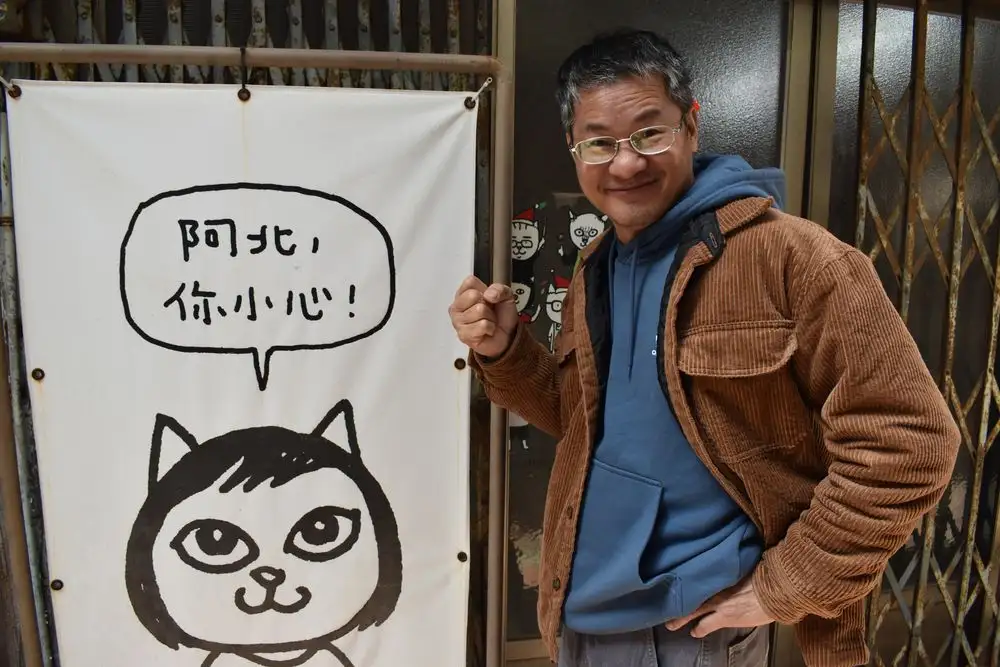 阿北，
你小心！